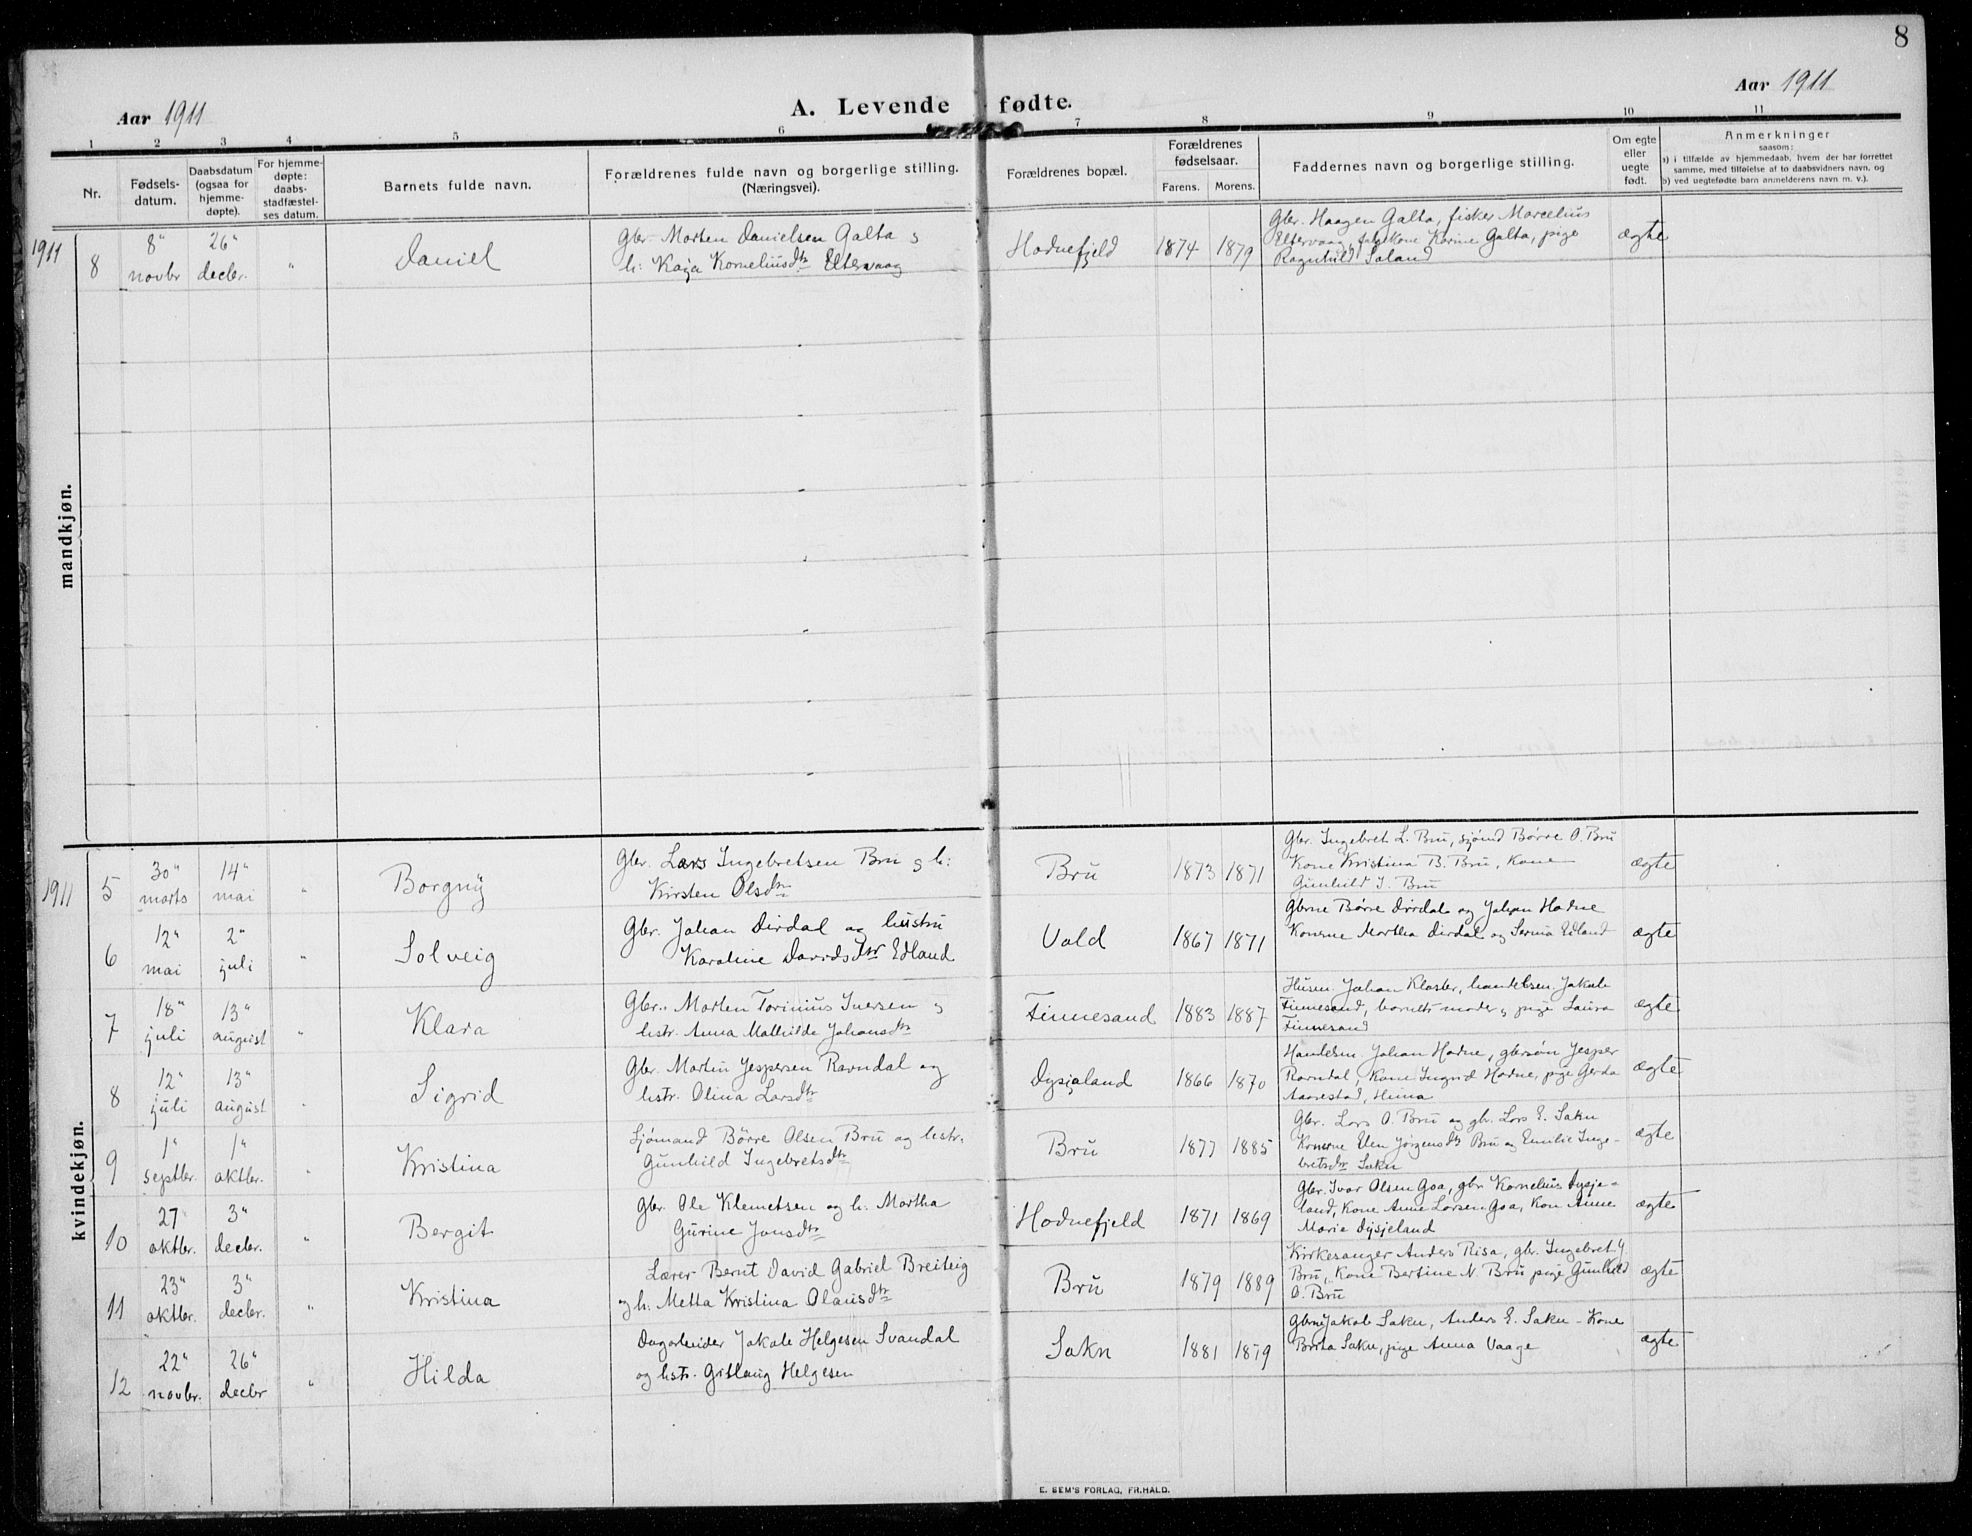 8
Aar 1911
A. Levende fødte.
Aar 1911
1 2 3 4 5 6 7 8 9 10 11
Nr.
Fødsels-
datum.
Daabsdatum
(ogsaa for
hjemme-
døpte).
For hjemme-
døpte:
daabs-
stadfæstel-
ses datum.
Barnets fulde navn.
Forældrenes fulde navn og borgerlige stilling.
(Næringsvei).
Forældrenes bopæl.
Forældrenes
fødselsaar.
Farens. Morens.
Faddernes navn og borgerlige stilling.
Om egte
eller
uegte
født.
Anmerkninger
saasom:
a) i tilfælde av hjemmedaab, hvem der har forrettet
samme, med tilføielse af to daabsvidners navn, og
b) ved uegtefødte barn anmelderens navn m. v.).
mandkjøn.
1911
8
8" novbr
26" decbr.
"
Daniel
Gbr. Morten Danielsen Galta og
h: Kaja Korneliusdtr. Eltervaag
Hodnefjeld
1874 1879
Gbr. Haagen Galta, fisker Marcelius
Eltervaag, kone Karine Galta, pige
Ragnhild Saland
ægte
kvindekjøn.
1911
5
30" marts
14" mai
"
Borgny
Gbr. Lars Ingebretsen Bru og h:
Kirsten Olsdtr
Bru
1873 1871
Gbr. Ingebret L. Bru, sjømd Børre O. Bru
Kone Kristina B. Bru, Kone
Gunhild I. Bru
ægte
6
12" mai
2" juli
"
Solveig
Gbr. Johan Dirdal og hustru
Karoline Davidsdtr Edland
Vold
1867 1871
Gbrne Børre Dirdal og Johan Hodne
Konerne Martha Dirdal og Serina Edland
ægte
7
18" juli
13" august
"
Klara
Gbr. Morten Torinius Iversen og
hstr. Anna Mathilde Johansdtr
Finnesand
1883 1887
Husm. Johan Kloster, handelsm. Jakob
Finnesand, barnets moder og pige Laura
Finnesand
ægte
8
12" juli
13" august
Sigrid
Gbr. Martin Jespersen Ravndal og
hstr. Olina Larsdtr
Dysjaland
1866 1870
Handelsm Johan Hodne, gbrsøn Jesper
Ravndal, Kone Ingrid Hodne, pige Gerda
Aarestad, Hinna
ægte
9
1" septbr.
1" oktbr.
"
Kristina
Sjømand Børre Olsen Bru og hstr.
Gunhild Ingebretsdtr
Bru
1877 1885
Gbr. Lars O. Bru og gb. Lars E. Sokn
Konerne Elen Jörgensdtr Bru og Emilie Inge-
bretsdtr Sokn
ægte
10
27 oktbr.
3" decbr.
"
Bergit
Gbr. Ole Klemetsen og h. Martha
Gurine Jonsdtr
Hodnefjeld
1871 1869
Gbr. Ivar Olsen Goa, gbr Kornelius Dysje-
land, Kone Anne Larsen Goa, Kon Anne
Marie Dysjeland
ægte
11
23" oktbr.
3" decbr.
"
Kristina
Lærer Bernt David Gabriel Breiteig
og h. Metta Kristina Olausdtr
Bru
1879 1889
Kirkesanger Anders Risa, gbr. Ingebret
Bru, Kone Bertine N. Bru pige Gunhild
O. Bru
ægte
12
22" novbr.
26" decbr
"
Hilda
Dagarbeider Jakob Helgesen Svandal
og hstr. Gitlaug Helgesen
Sokn
1881 1879
Gbrne Jakob Sokn, Anders E. Sokn - Kone
Brita Sokn, pige Anna Vaage
ægte
E. SEM'S FORLAG, FR.HALD.